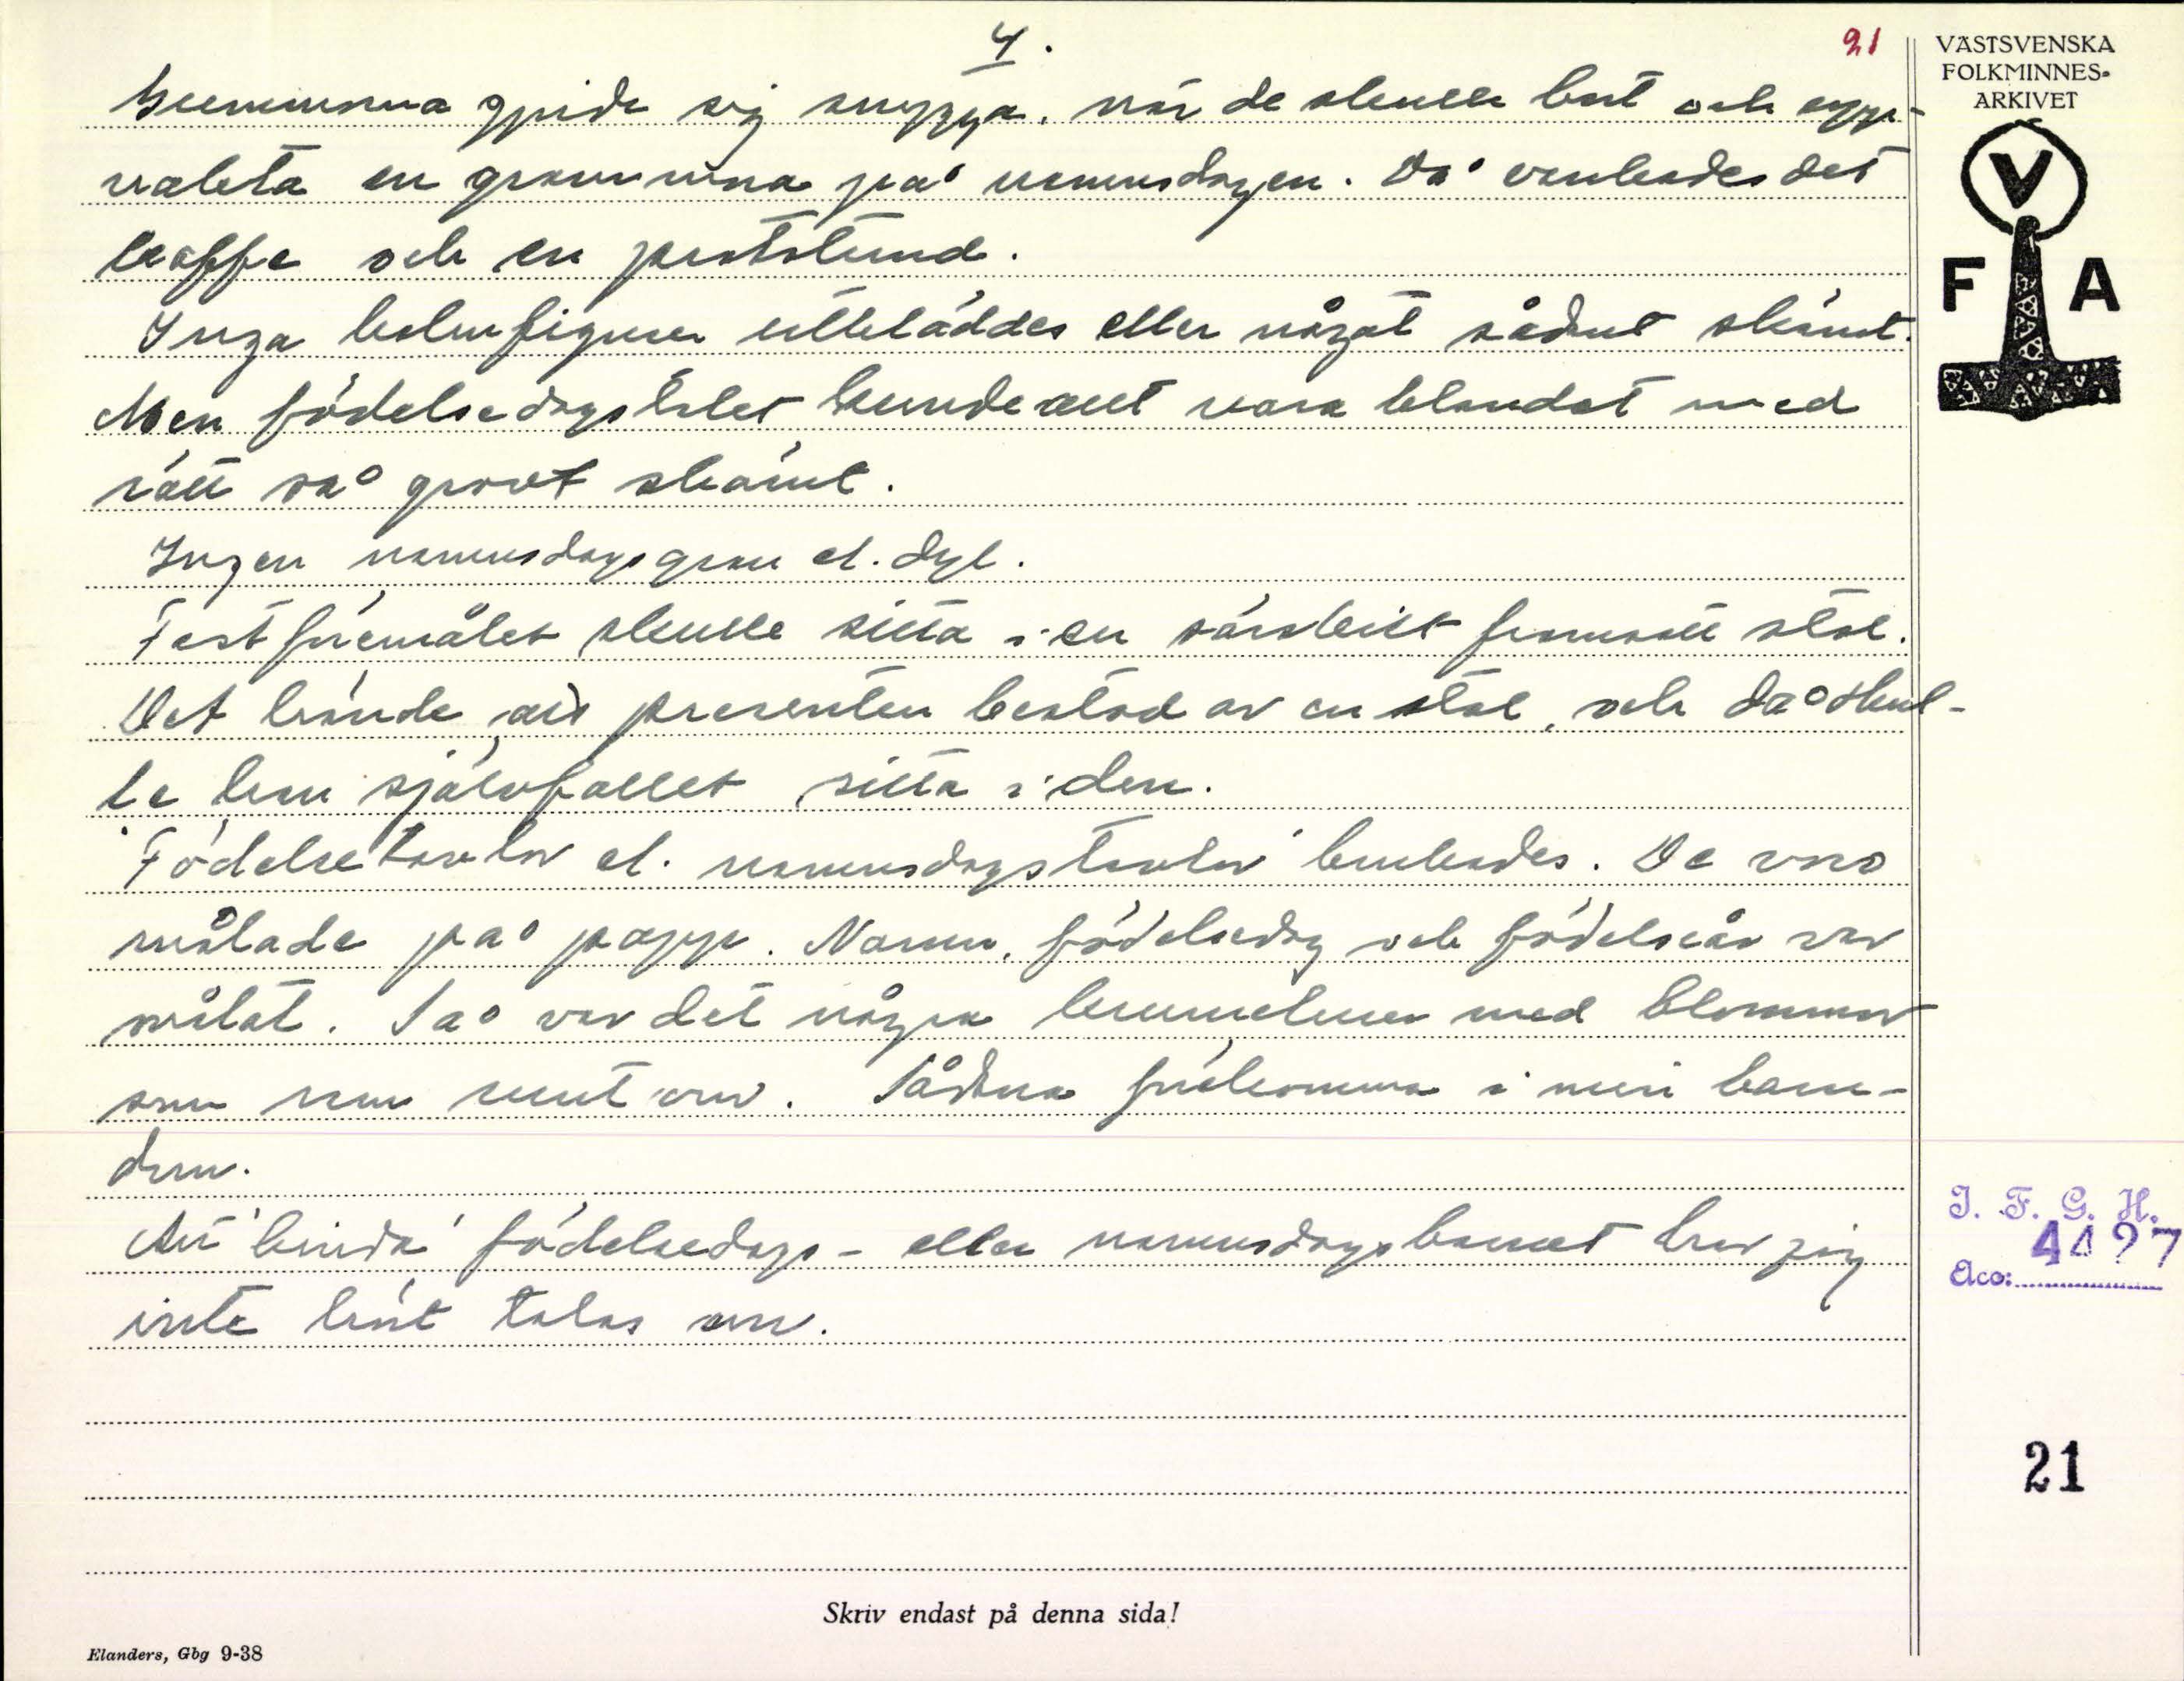 4.
21
VÄSTSVENSKA
FOLKMINNES-
ARKIVET
V
F A
Gummorna gjorde sig snygga, när de skulle bort och upp-
vakta en gramma på namnsdagen. Då vankades det
kaffe och en pratstund.
Inga halmfigurer utkläddes eller något sådant skämt.
Men födelsedagstalet kunde allt vara blandat med
rätt så grovt skämt.
Ingen namnsdagsgran el. dyl.
Festföremålet skulle sitta i en särskilt framsatt stol.
Det hände att presenten bestod av en stol, och då skul-
le han självfallet sitta i den.
Födelsetavlor el. namnsdagstavlor brukades. De voro
målade på papp. Namn, födelsedag och födelseår var
målat. Så var det några krumelurer med blommor
som ram runt om. Sådana förekommo i min barn-
dom.
Att "binda" födelsedags- eller namnsdagsbarnet har jag
inte hört talas om.
I. F. G. H.
4427
Acc:
21
Skriv endast på denna sida!
Elanders, Gbg 9-38